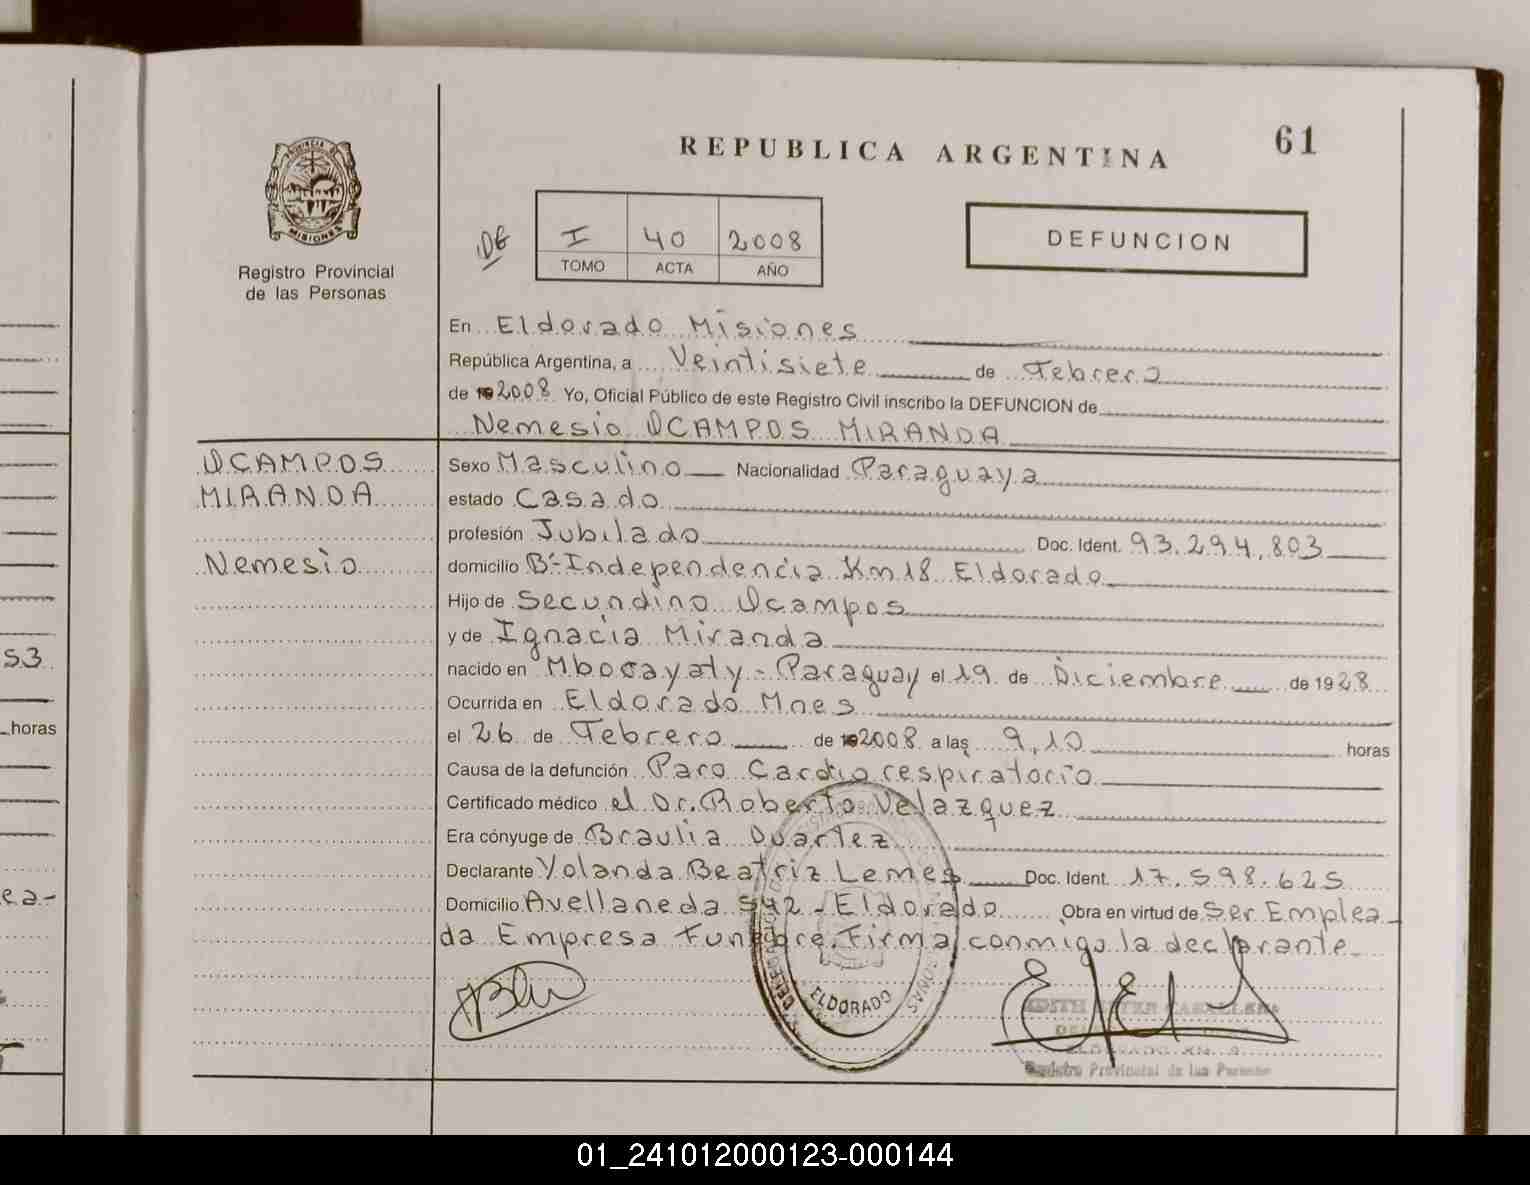 REPUBLICA ARGENTINA
61
PROVINCIA DE
MISIONES
Registro Provincial
de las Personas
DE
I 40 2008
TOMO ACTA AÑO
DEFUNCION
En Eldorado Misiones
República Argentina, a Veintisiete de Febrero
de 19 2008 Yo, Oficial Público de este Registro Civil inscribo la DEFUNCION de
Nemesio OCAMPOS MIRANDA
OCAMPOS
MIRANDA
Nemesio
Sexo Masculino Nacionalidad Paraguaya
estado Casado
profesión Jubilado Doc. Ident. 93.294.803
domicilio Bº Independencia Km 18 Eldorado
Hijo de Secundino Ocampos
y de Ignacia Miranda
nacido en Mbocayaty - Paraguay el 19 de Diciembre de 1928
Ocurrida en Eldorado Mnes
el 26 de Febrero de 19 2008 a las 9,10 horas
Causa de la defunción Paro Cardio respiratorio
Certificado médico el Dr. Roberto Velazquez
Era cónyuge de Braulia Duartez
Declarante Yolanda Beatriz Lemes Doc. Ident. 17.598.625
Domicilio Avellaneda 542 - Eldorado Obra en virtud de Ser Emplea-
da Empresa Funebre. Firma conmigo la declarante
ELDORADO
Registro Provincial de las Personas
53
horas
ea-
01_241012000123-000144